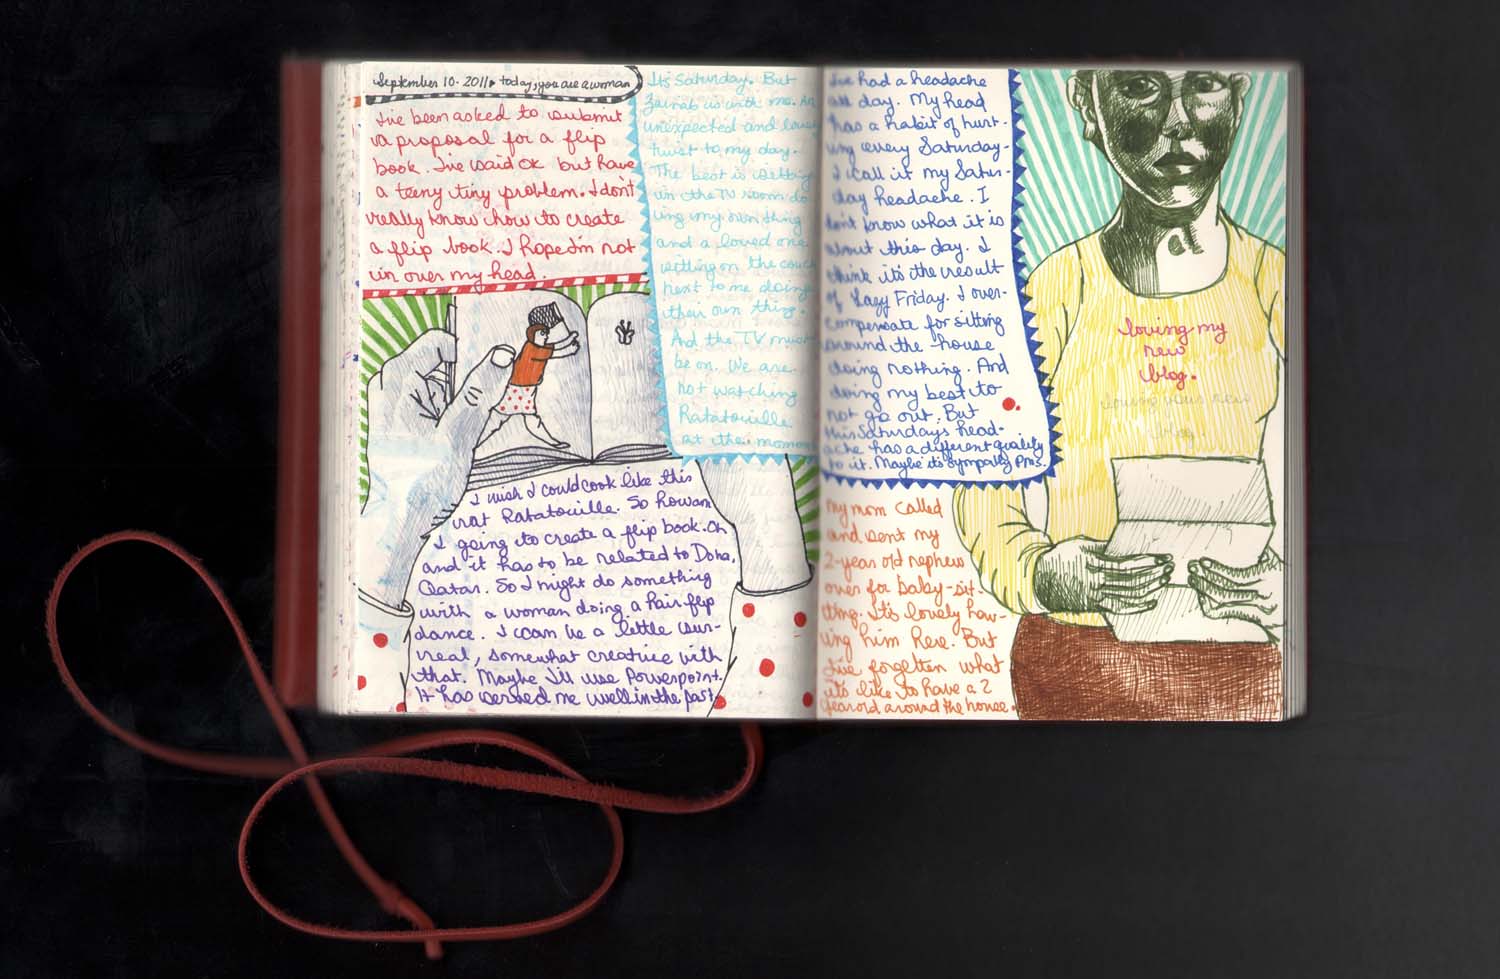 September 10. 2011 today, you are a woman
I've been asked to submit
a proposal for a flip
book. I've said ok but have
a teeny tiny problem. I don't
really know how to create
a flip book. I hope I'm not
in over my head.
Its Saturday. But
Zainab is with me. An
unexpected and lovely
twist to my day.
The best is sitting
in the TV room do
ing my own thing
and a loved one
sitting on the couch
next to me doing
their own thing.
And the TV must
be on. We are
not watching
Ratatouille
at the moment
I wish I could cook like this
rat Ratatouille. So Rowan
I going to create a flip book. Oh
and it has to be related to Doha,
Qatar. So I might do something
with a woman doing a hair flip
dance. I can be a little sur-
real, somewhat creative with
that. Maybe I'll use Powerpoint.
It has served me well in the past.
I've had a headache
all day. My head
has a habit of hurt-
ing every Saturday-
I call it my Satur-
day headache. I
don't know what it is
about this day. I
think its the result
of Lazy Friday. I over-
compensate for sitting
around the house
doing nothing. And
doing my best to
not go out. But
this Saturdays head-
ache has a different quality
to it. Maybe its sympathy pms.
My mom called
and sent my
2-year old nephew
over for baby-sit-
ting. Its lovely hav-
ing him here. But
I've forgotten what
its like to have a 2
year old around the house.
loving my
new
blog.
loving your new
blog.